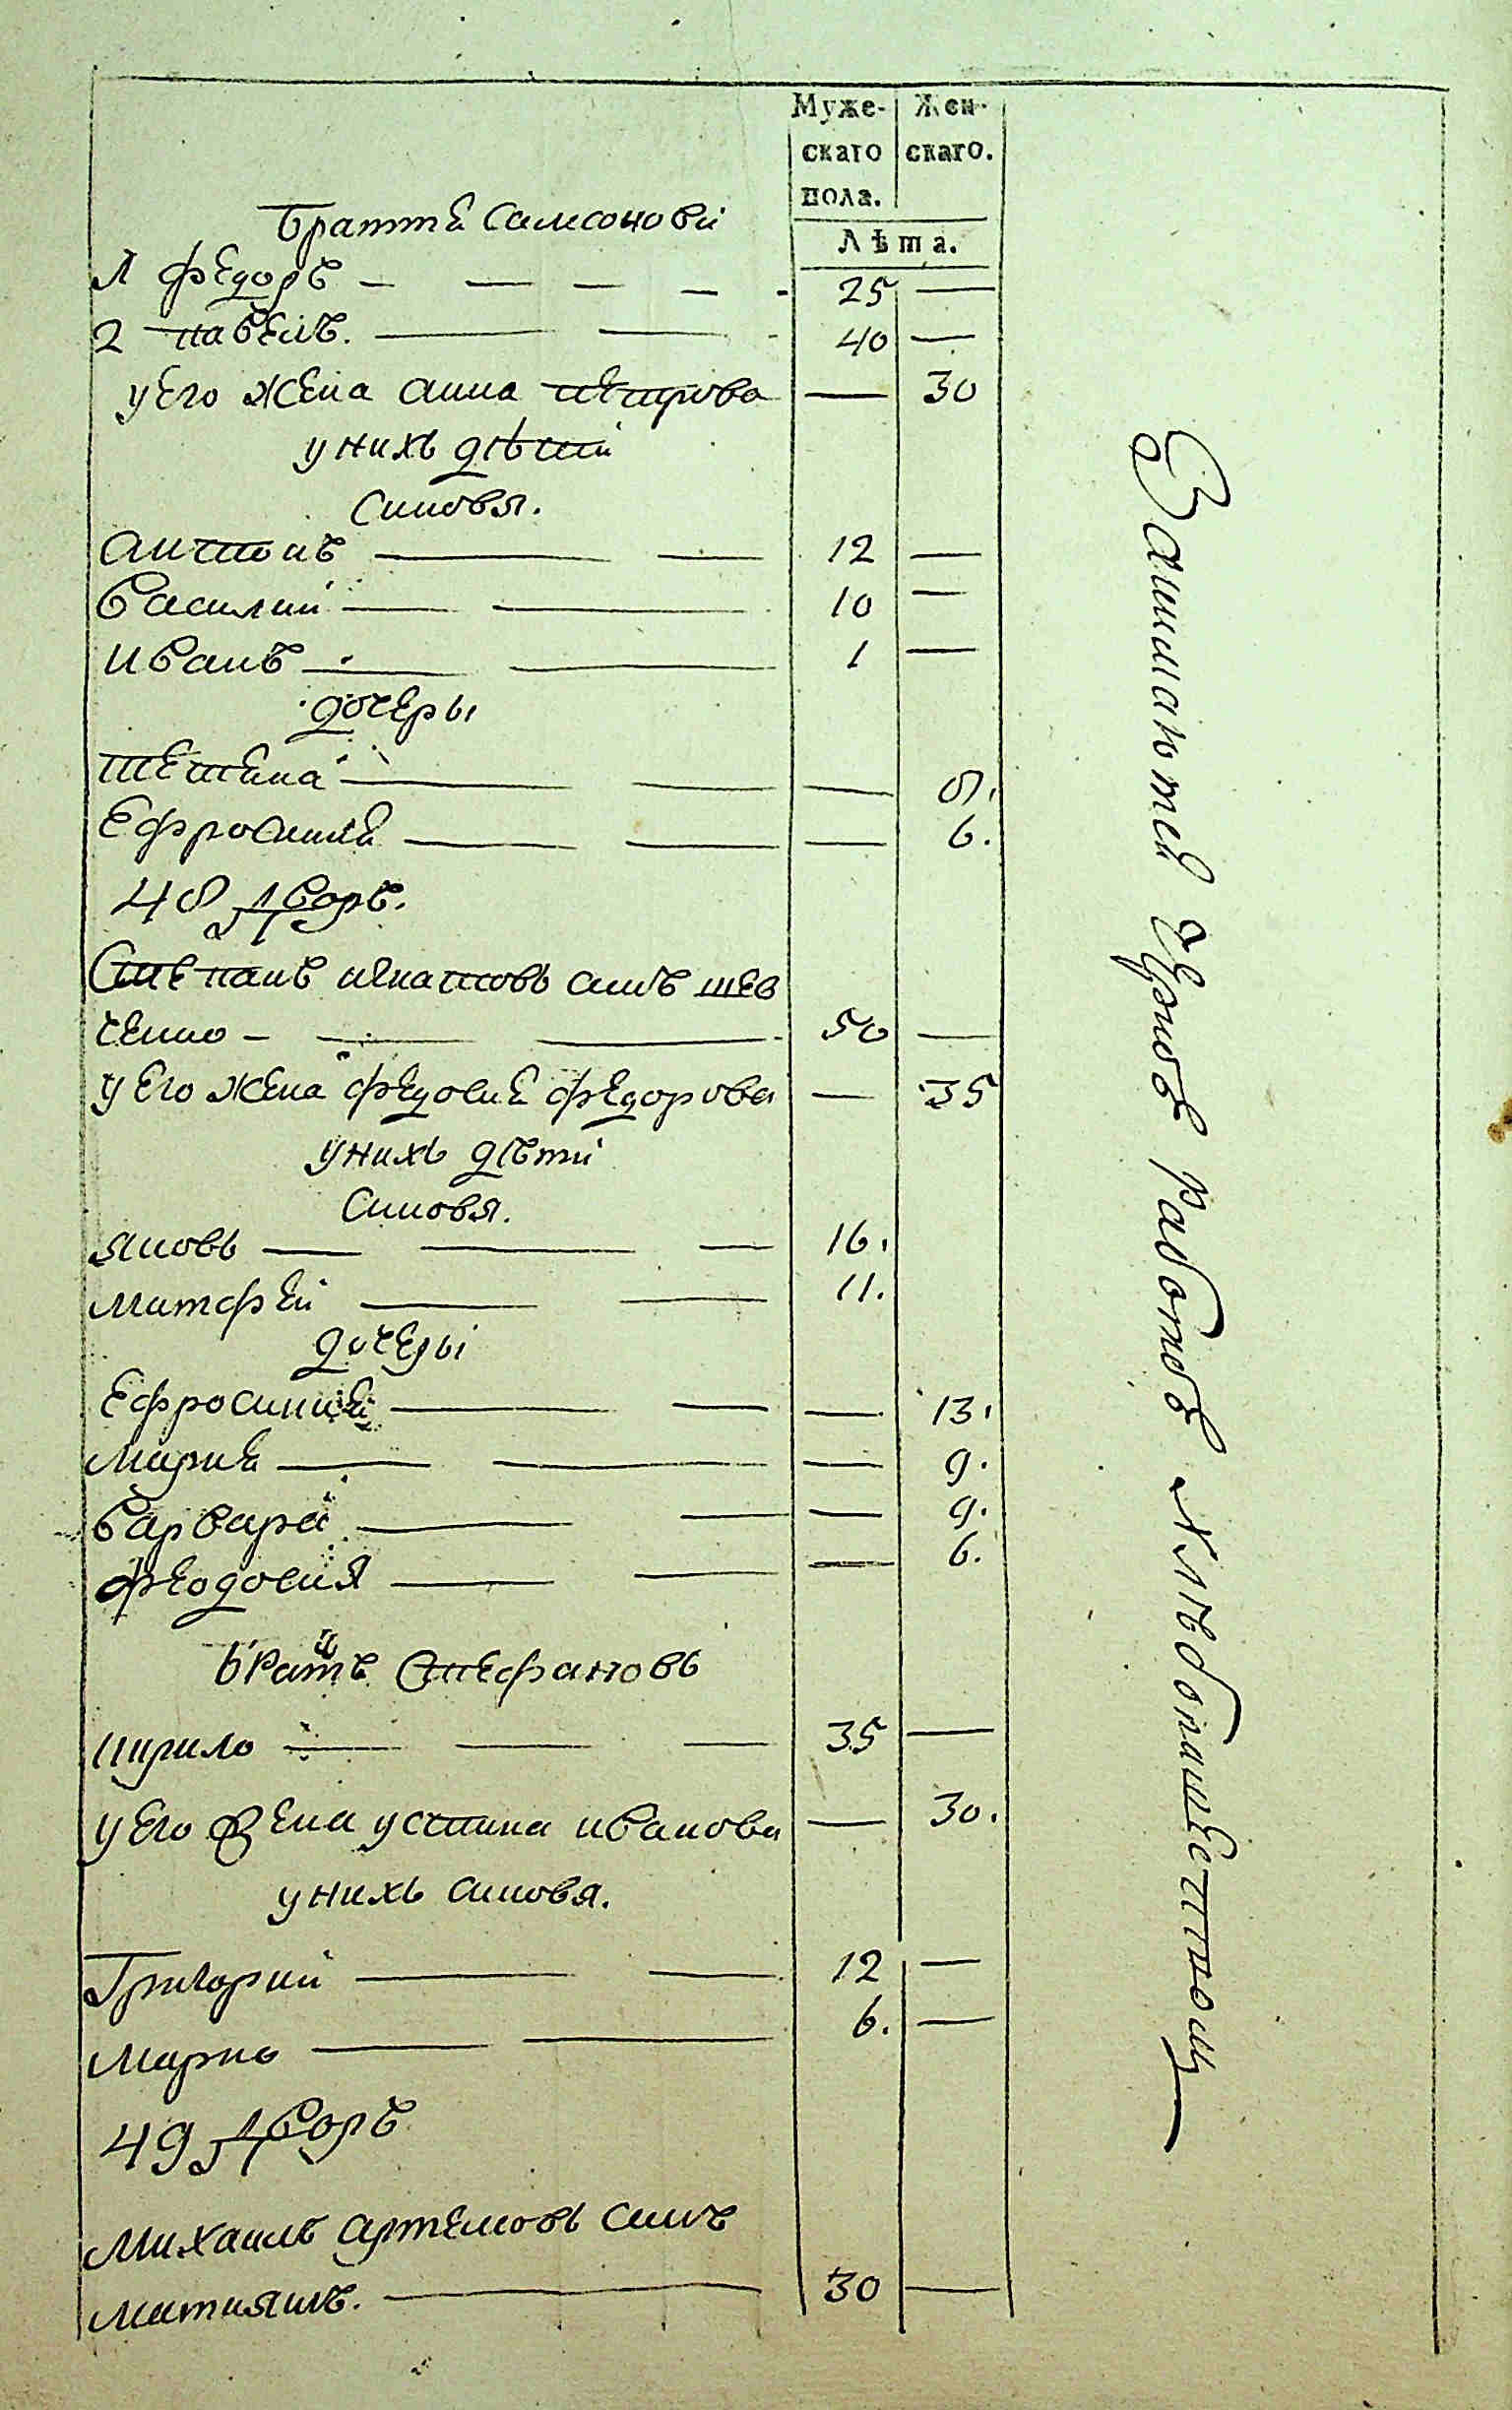 Муже- Жен-
скаго скаго.
пола.
Лѣта.
Братти Самсонови
1 Федоръ — — — — - 25 —
2 Павелъ. — — - 40 —
у Его жена анна петрова — 30
у нихъ дѣти
Синовя.
Антонъ — — 12 —
Василии — — 10 —
Иванъ — — 1 —
дочеры
— — —
Ефросиния — — — 6.
48 Дворъ.
Степанъ игнатовъ синъ шев
ченко - — — 50 —
у Его жена федосия федорова — 35
у нихъ дѣти
Синовя.
яковъ — — — 16.
матфей — — 11.
дочеры
Ефросиния — — — 13.
Мария — — — 9.
Варвара — — — 9.
феодосия — — — 6.
братъ Стефановъ
кирило — — — 35 —
у Его жена устина иванова — 30.
у нихъ синовя.
Григорий — — 12 —
Марко — — 6. —
49 Дворъ
Михаилъ артемовъ синъ
матияшъ. — 30 —
Занимаютца работою хлѣбопашественною